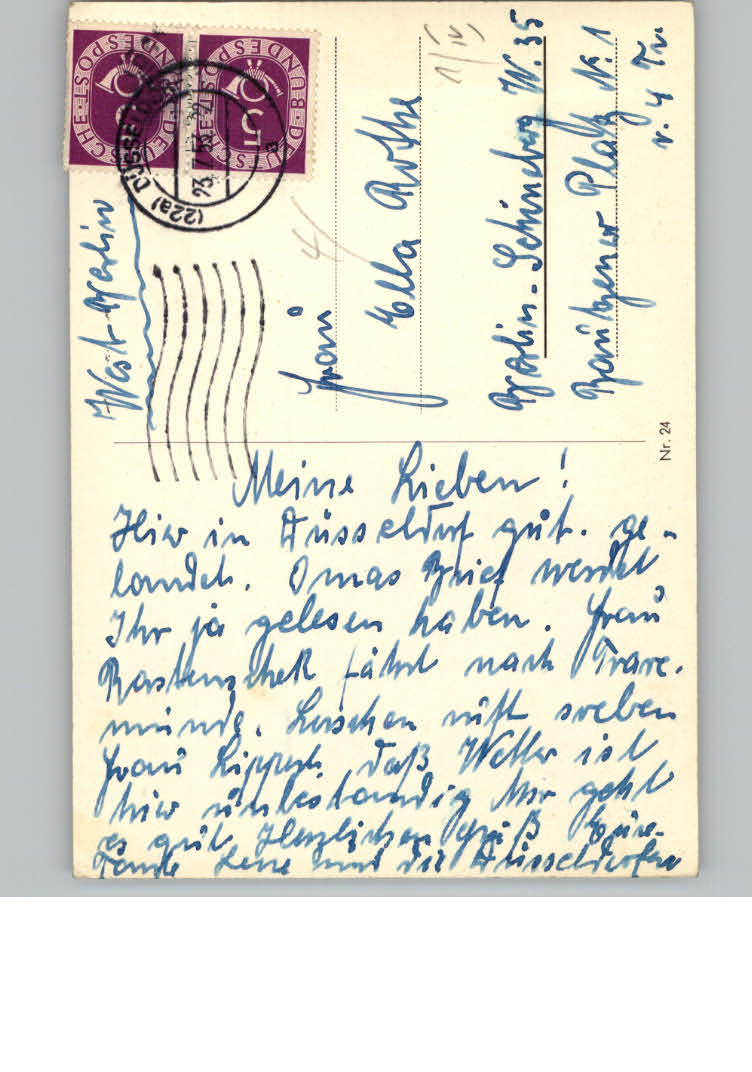 Meine Lieben!
Hier in Düsseldorf gut. ge-
landet. Omas Brief werdet
Ihr ja gelesen haben. Frau
fährt nach Trave-
münde. soeben
Frau daß Wetter ist
hier unbeständig Mir geht
es gut Herzlichen Gruß Eure
Tante Lene und die Düsseldorfer
West-Berlin
Frau
Ella Rothe
Berlin-Schöneberg W. 35
Bautzener Platz N. 1
v. 4 Tr.
1/IV
4/
Nr. 24
DEUTSCHE BUNDESPOST
5
DEUTSCHE BUNDESPOST
(22a) DÜSSELDORF
a